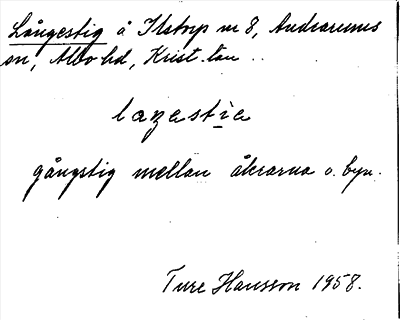 Långestig å Ilstorp nr 8, Andrarums
sn, Albo hd, Krist. län ..
laŋastiə
gångstig mellan åkrarna o. byn.
Ture Hansson 1958.